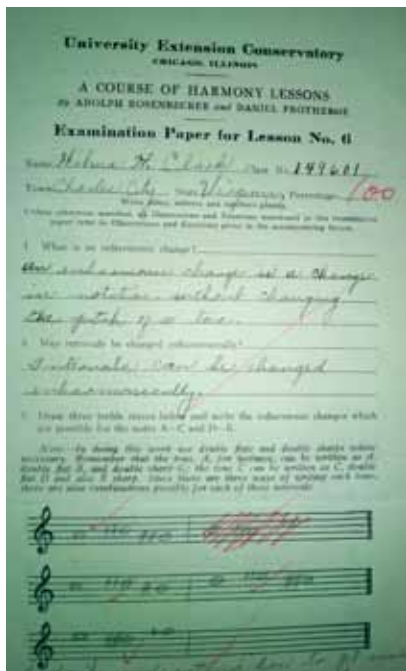 University Extension Conservatory
CHICAGO, ILLINOIS
A COURSE OF HARMONY LESSONS
By ADOLPH ROSENBECKER and DANIEL PROTHEROE
Examination Paper for Lesson No. 6
Name Wilma H. Clark Class No. 149601
Town Charles City State Percentage 100
Write name, address and numbers plainly.
1. What is an enharmonic change?
An enharmonic change is a change
in notation without changing
the pitch of a tone.
2. May intervals be changed enharmonically?
Intervals can be changed
enharmonically.
3. Draw three treble staves below and write the enharmonic changes which
are possible for the notes A—C and D—E.
Note: In doing this work use double flats and double sharps where
necessary. Remember that the tone, A, for instance, can be written as A,
double flat B, and double sharp G; the tone C can be written as C, double
flat D and also B sharp. Since there are three ways of writing each tone,
there are nine combinations possible for each of these intervals.